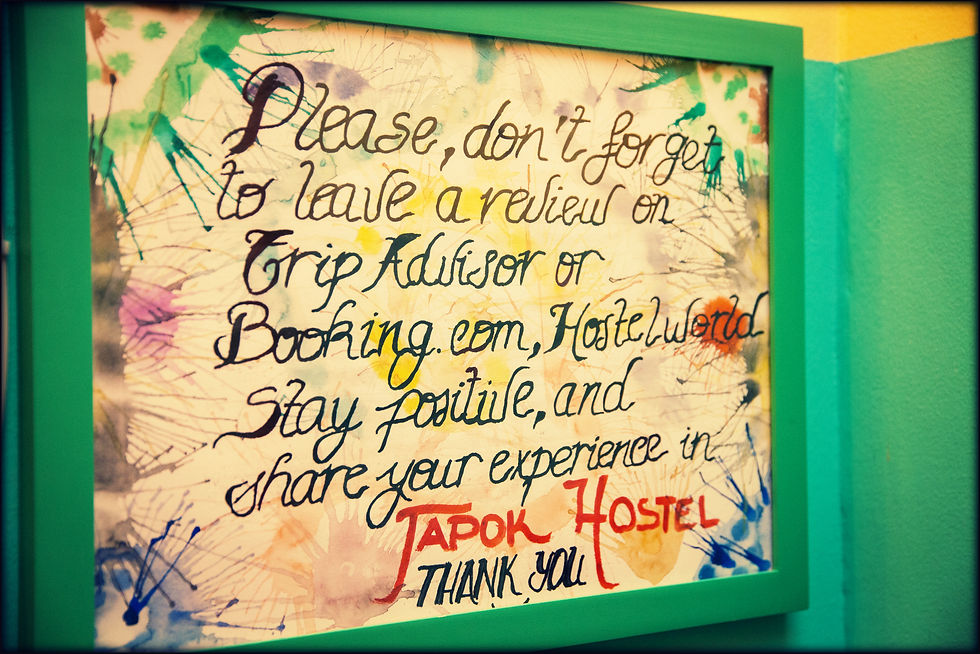 Please, don't forget
to leave a review on
Trip Advisor or
Booking.com, Hostelworld
Stay positive, and
share your experience in
TAPOK HOSTEL
THANK YOU